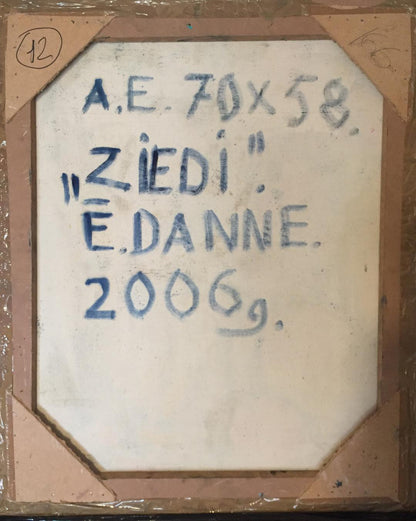 12
A.E. 70x58.
"ZIEDI".
Ē.DANNE.
2006g.